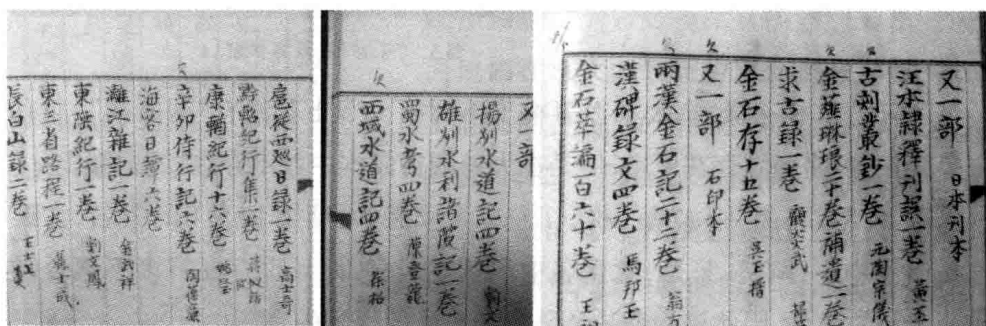 扈從西巡日録一巻 高士奇
黔軺紀行集一巻 蔣攸銛
康輶紀行十六巻 姚瑩
欠
辛卯侍行記六巻 陶葆廉
海客日譚六巻
灕江雜記一巻 金武祥
東陲紀行一巻 劉文鳳
東三省路程一巻 聶士成
長白山録二巻 王士
又一部
水道記四巻 劉文
水利諸記一巻
蜀水考四巻 陳登龍
欠
西域水道記四巻 徐松
又一部 日本刊本
汪本隸釋刊誤一巻 黃丕
欠
古刻叢鈔一巻 元陶宗儀
欠
金薤琳琅二十巻補遺一巻
求古録一巻 顧炎武
金石存十五巻 吳玉搢
欠
又一部 石印本
欠
兩漢金石記二十二巻 翁方
漢碑録文四巻 馬邦玉
金石萃編一百六十巻 王